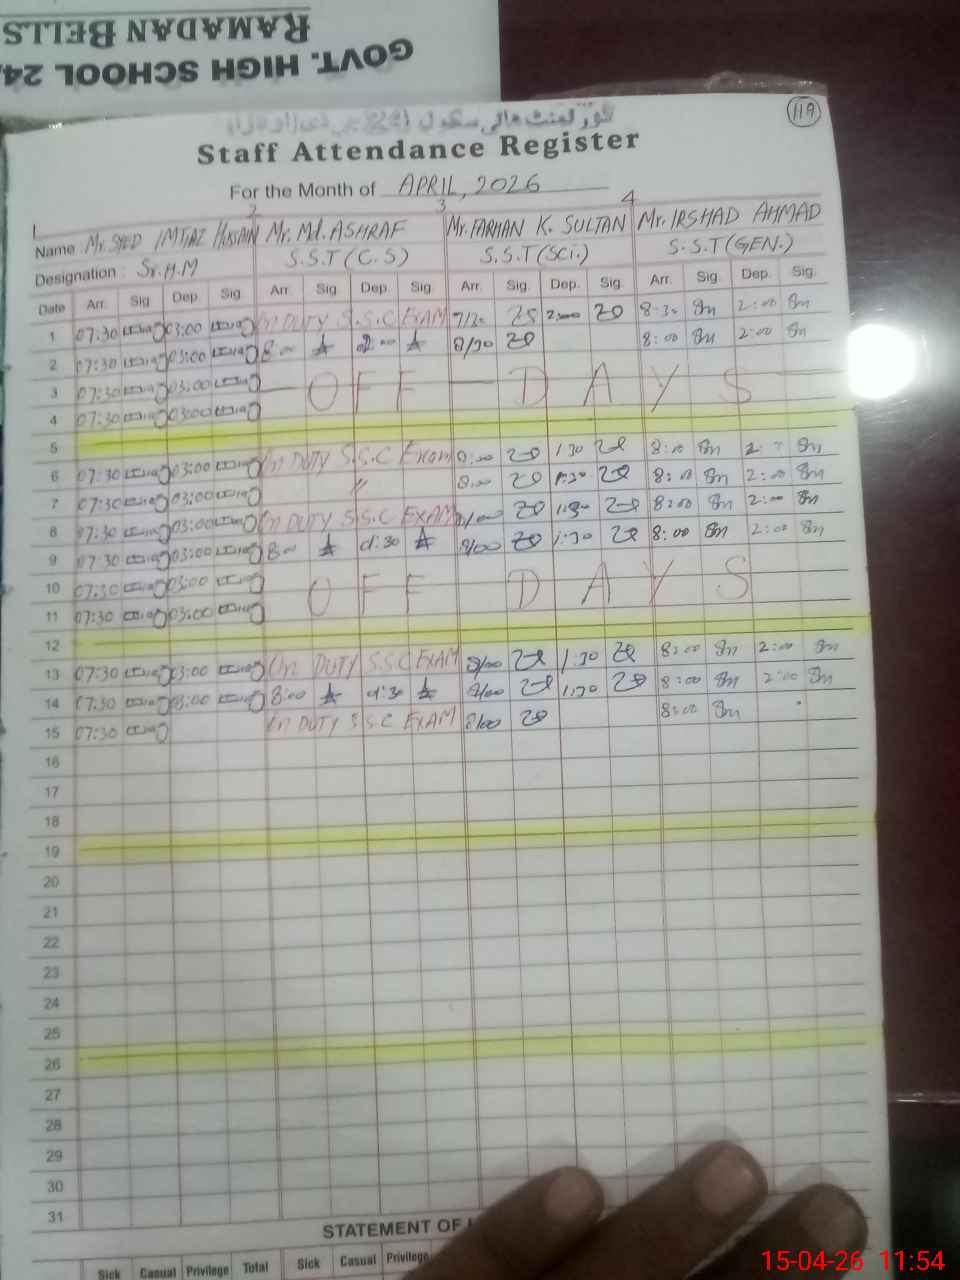 GOVT. HIGH SCHOOL 24
RAMADAN BELLS
119
گورنمنٹ ہائی سکول
Staff Attendance Register
For the Month of APRIL, 2026
1 2 3 4
Name Mr. SYED IMTIAZ HUSSAIN Mr. Md. ASHRAF Mr. FARHAN K. SULTAN Mr. IRSHAD AHMAD
Designation : Sr. H.M S.S.T (C.S) S.S.T (Sci.) S.S.T (GEN.)
Date Arr. Sig Dep. Sig. Arr. Sig Dep. Sig. Arr. Sig. Dep. Sig. Arr. Sig. Dep. Sig.
1 07:30 03:00 On DUTY S.S.C EXAM 7/30 2:00 8:30 2:00
2 07:30 03:00 8:00 2:00 8/30 8:00 2:00
3 07:30 03:00 OFF DAYS
4 07:30 03:00
5
6 07:30 03:00 On DUTY S.S.C Exam 8:00 1:30 8:00
7 07:30 03:00 〃 8:00 1:30 8:00 2:00
8 07:30 03:00 On DUTY S.S.C EXAM 8/00 1:30 8:00 2:00
9 07:30 03:00 8:00 1:30 8/00 1:30 8:00 2:00
10 07:30 03:00 OFF DAYS
11 07:30 03:00
12
13 07:30 03:00 On DUTY S.S.C EXAM 8/00 1:30 8:00 2:00
14 07:30 03:00 8:00 1:30 8/00 1:30 8:00 2:00
15 07:30 On DUTY S.S.C EXAM 8/00 8:00
16
17
18
19
20
21
22
23
24
25
26
27
28
29
30
31
STATEMENT OF
Sick Casual Privilege Total Sick Casual Privilege
15-04-26 11:54